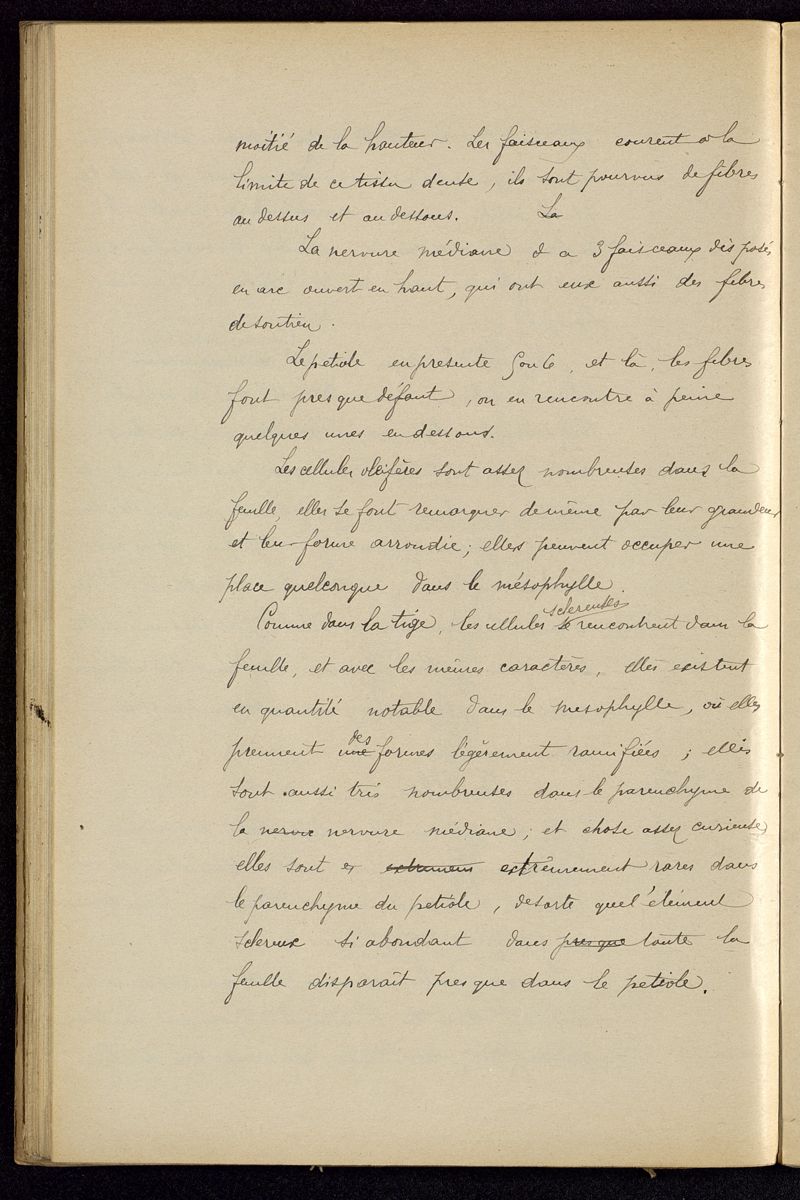 moitié de la hauteur. Les faisceaux courent à la
limite de ce tissu dense, ils sont pourvus de fibres
au dessus et au dessous. La
La nervure médiane d a 3 faisceaux disposés
en arc ouvert en haut, qui ont eux aussi des fibres
de soutien.
Le petiole en presente 5 ou 6, et là, les fibres
font presque défaut, on en rencontre à peine
quelques unes en dessous.
Les cellules oléifères sont assez nombreuses dans la
feuille, elles se font remarquer de même par leur grandeur
et leur forme arrondie; elles peuvent occuper une
place quelconque dans le mésophylle.
sclereuses
Comme dans la tige, les cellules se rencontrent dans la
feuille, et avec les mêmes caractères, elles existent
en quantité notable dans le mesophylle, où elles
des
prennent une formes légèrement ramifiées; elles
sont aussi très nombreuses dans le parenchyme de
la nervure médiane; et chose assez curieuse,
elles sont ex extrêmement rares dans
le parenchyme du petiole, desorte que l'élément
sclereux si abondant dans presque toute la
feuille disparaît presque dans le petiole.